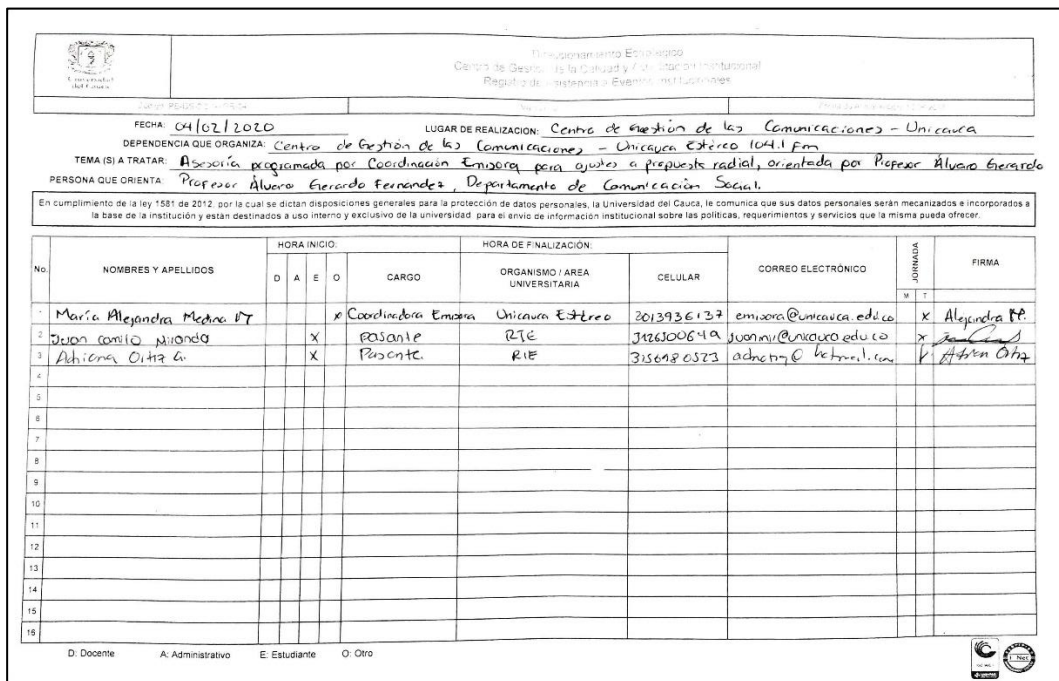 Universidad
del Cauca
Direccionamiento Estratégico
Centro de Gestión de la Calidad y Acreditación Institucional
Registro de Asistencia a Eventos Institucionales
FECHA: 04/02/2020 LUGAR DE REALIZACION: Centro de Gestión de las Comunicaciones - Unicauca
DEPENDENCIA QUE ORGANIZA: Centro de Gestión de las Comunicaciones - Unicauca Estéreo 104.1 fm
TEMA (S) A TRATAR: Asesoría programada por Coordinación Emisora para ajustes a propuesta radial, orientada por Profesor Álvaro Gerardo
PERSONA QUE ORIENTA: Profesor Álvaro Gerardo Fernandez, Departamento de Comunicación Social.
En cumplimiento de la ley 1581 de 2012, por la cual se dictan disposiciones generales para la protección de datos personales, la Universidad del Cauca, le comunica que sus datos personales serán mecanizados e incorporados a
la base de la institución y están destinados a uso interno y exclusivo de la universidad para el envio de información institucional sobre las políticas, requerimientos y servicios que la misma pueda ofrecer.
HORA INICIO: HORA DE FINALIZACIÓN:
No. NOMBRES Y APELLIDOS D A E O CARGO ORGANISMO / AREA UNIVERSITARIA CELULAR CORREO ELECTRÓNICO JORNADA M T FIRMA
1 María Alejandra Medina x Coordinadora Emisora Unicauca Estéreo 2013936137 emisora@unicauca.edu.co x Alejandra
2 Juan camilo Miranda x pasante RIE x
3 Adriana Ortiz G. x Pasante. RIE 3156980523
4
5
6
7
8
9
10
11
12
13
14
15
16
D: Docente A: Administrativo E: Estudiante O: Otro